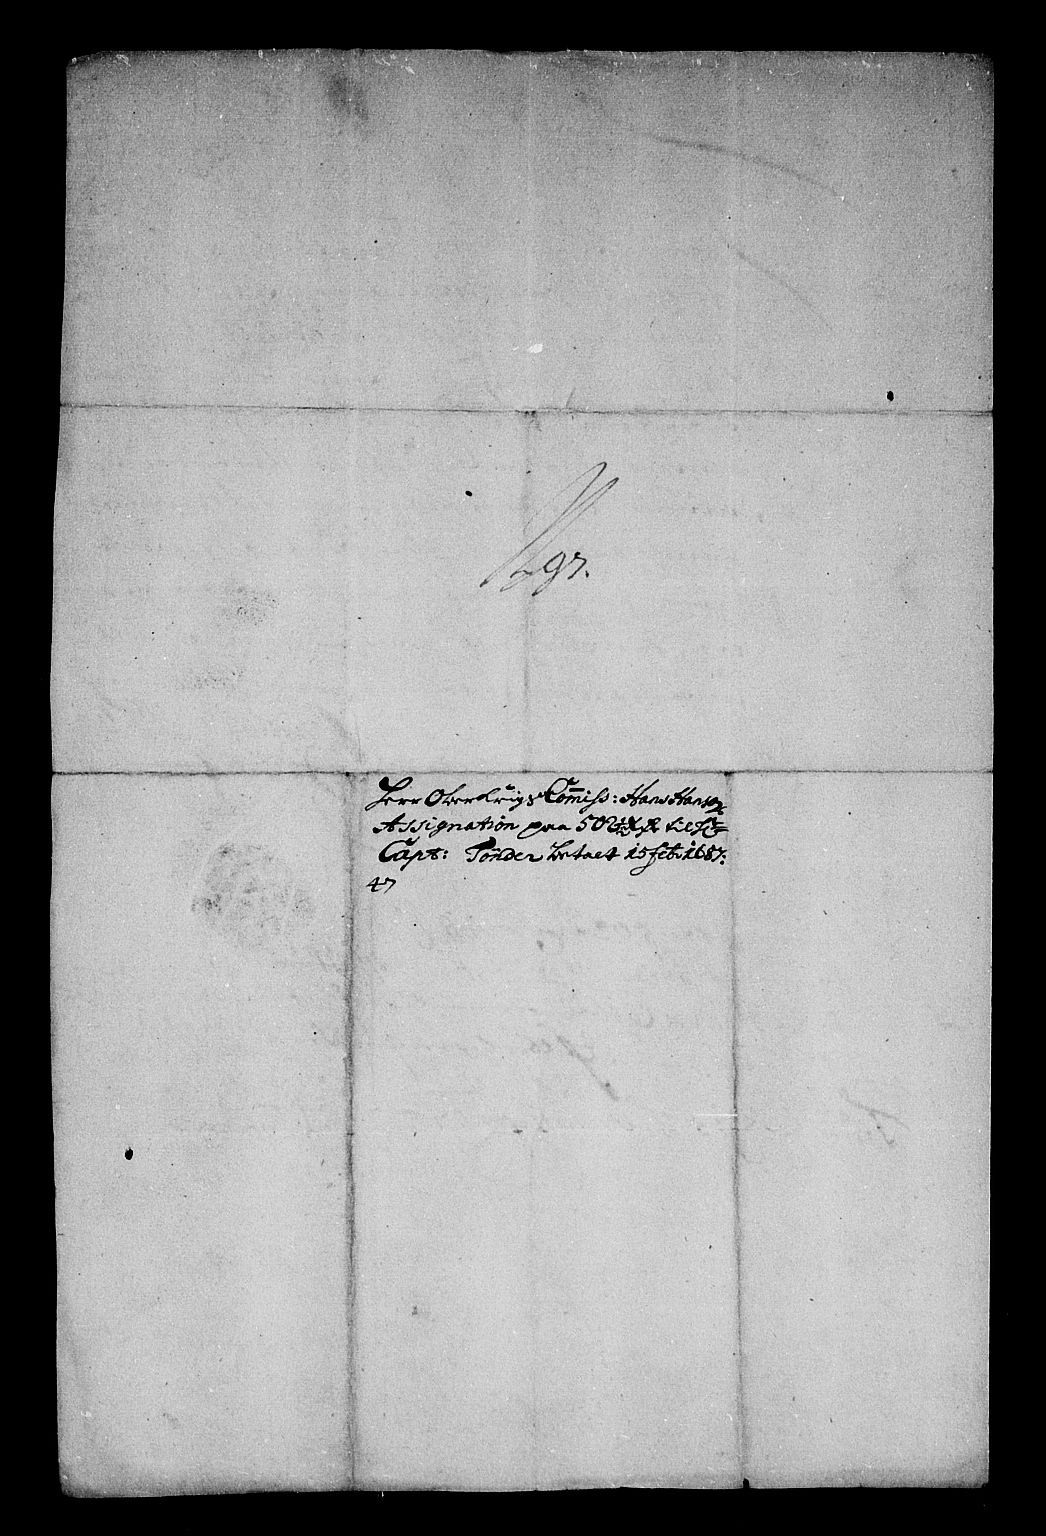 N 97.
Herr OberKrigsCommiss: Hans Hansen
Assignation paa 50 til
Capt: Tønder betalt 15 feb: 1687:
47